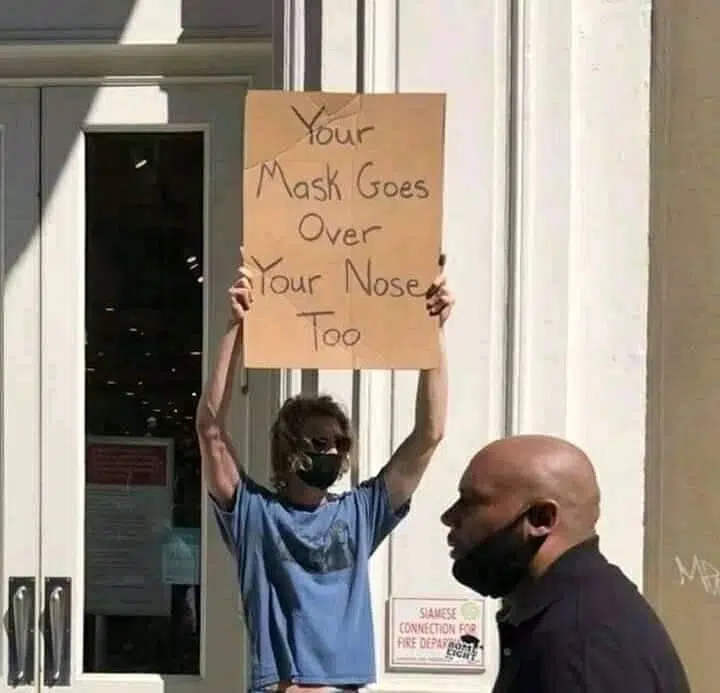 Your
Mask Goes
Over
Your Nose
Too
SIAMESE
CONNECTION FOR
FIRE